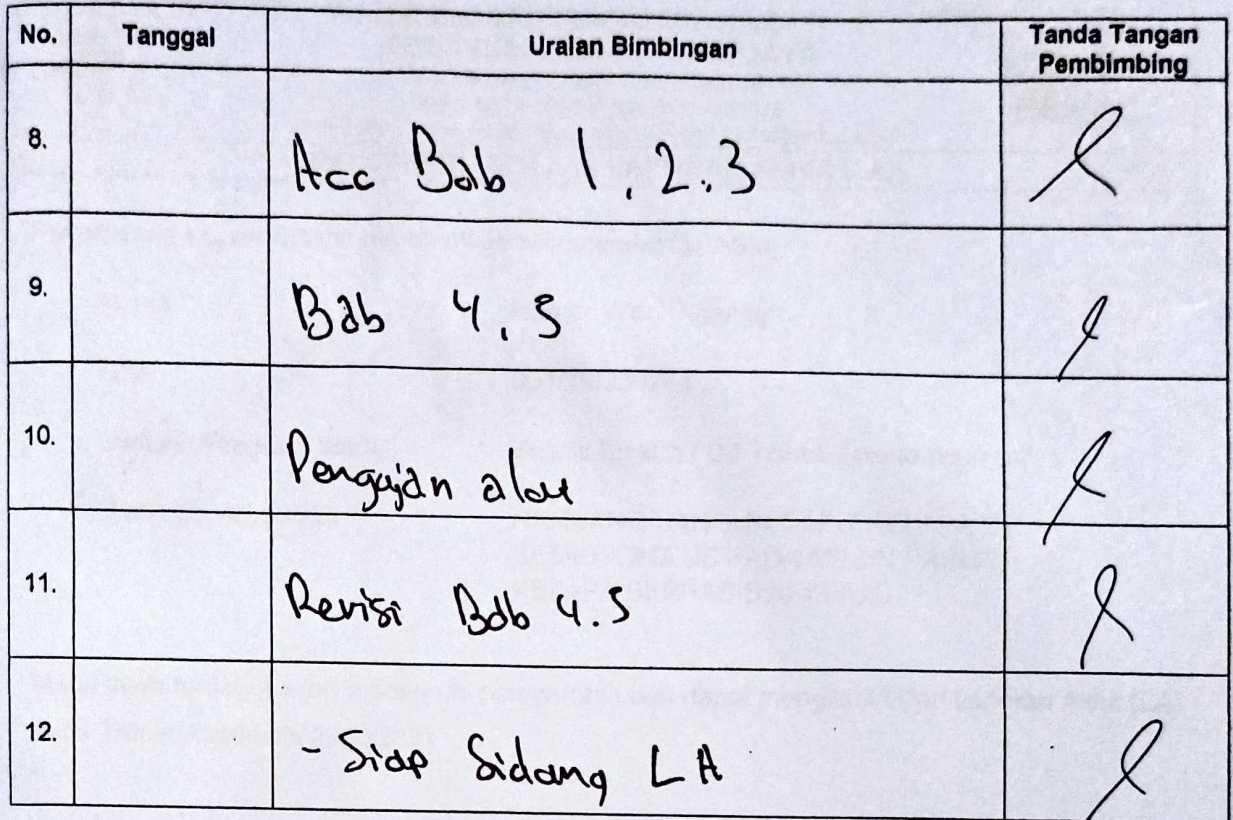 No. Tanggal Uraian Bimbingan Tanda Tangan Pembimbing
8. Acc Bab 1,2.3
9. Bab 4,5
10. Pengujian alat
11. Revisi Bab 4.5
12. - Siap Sidang LA